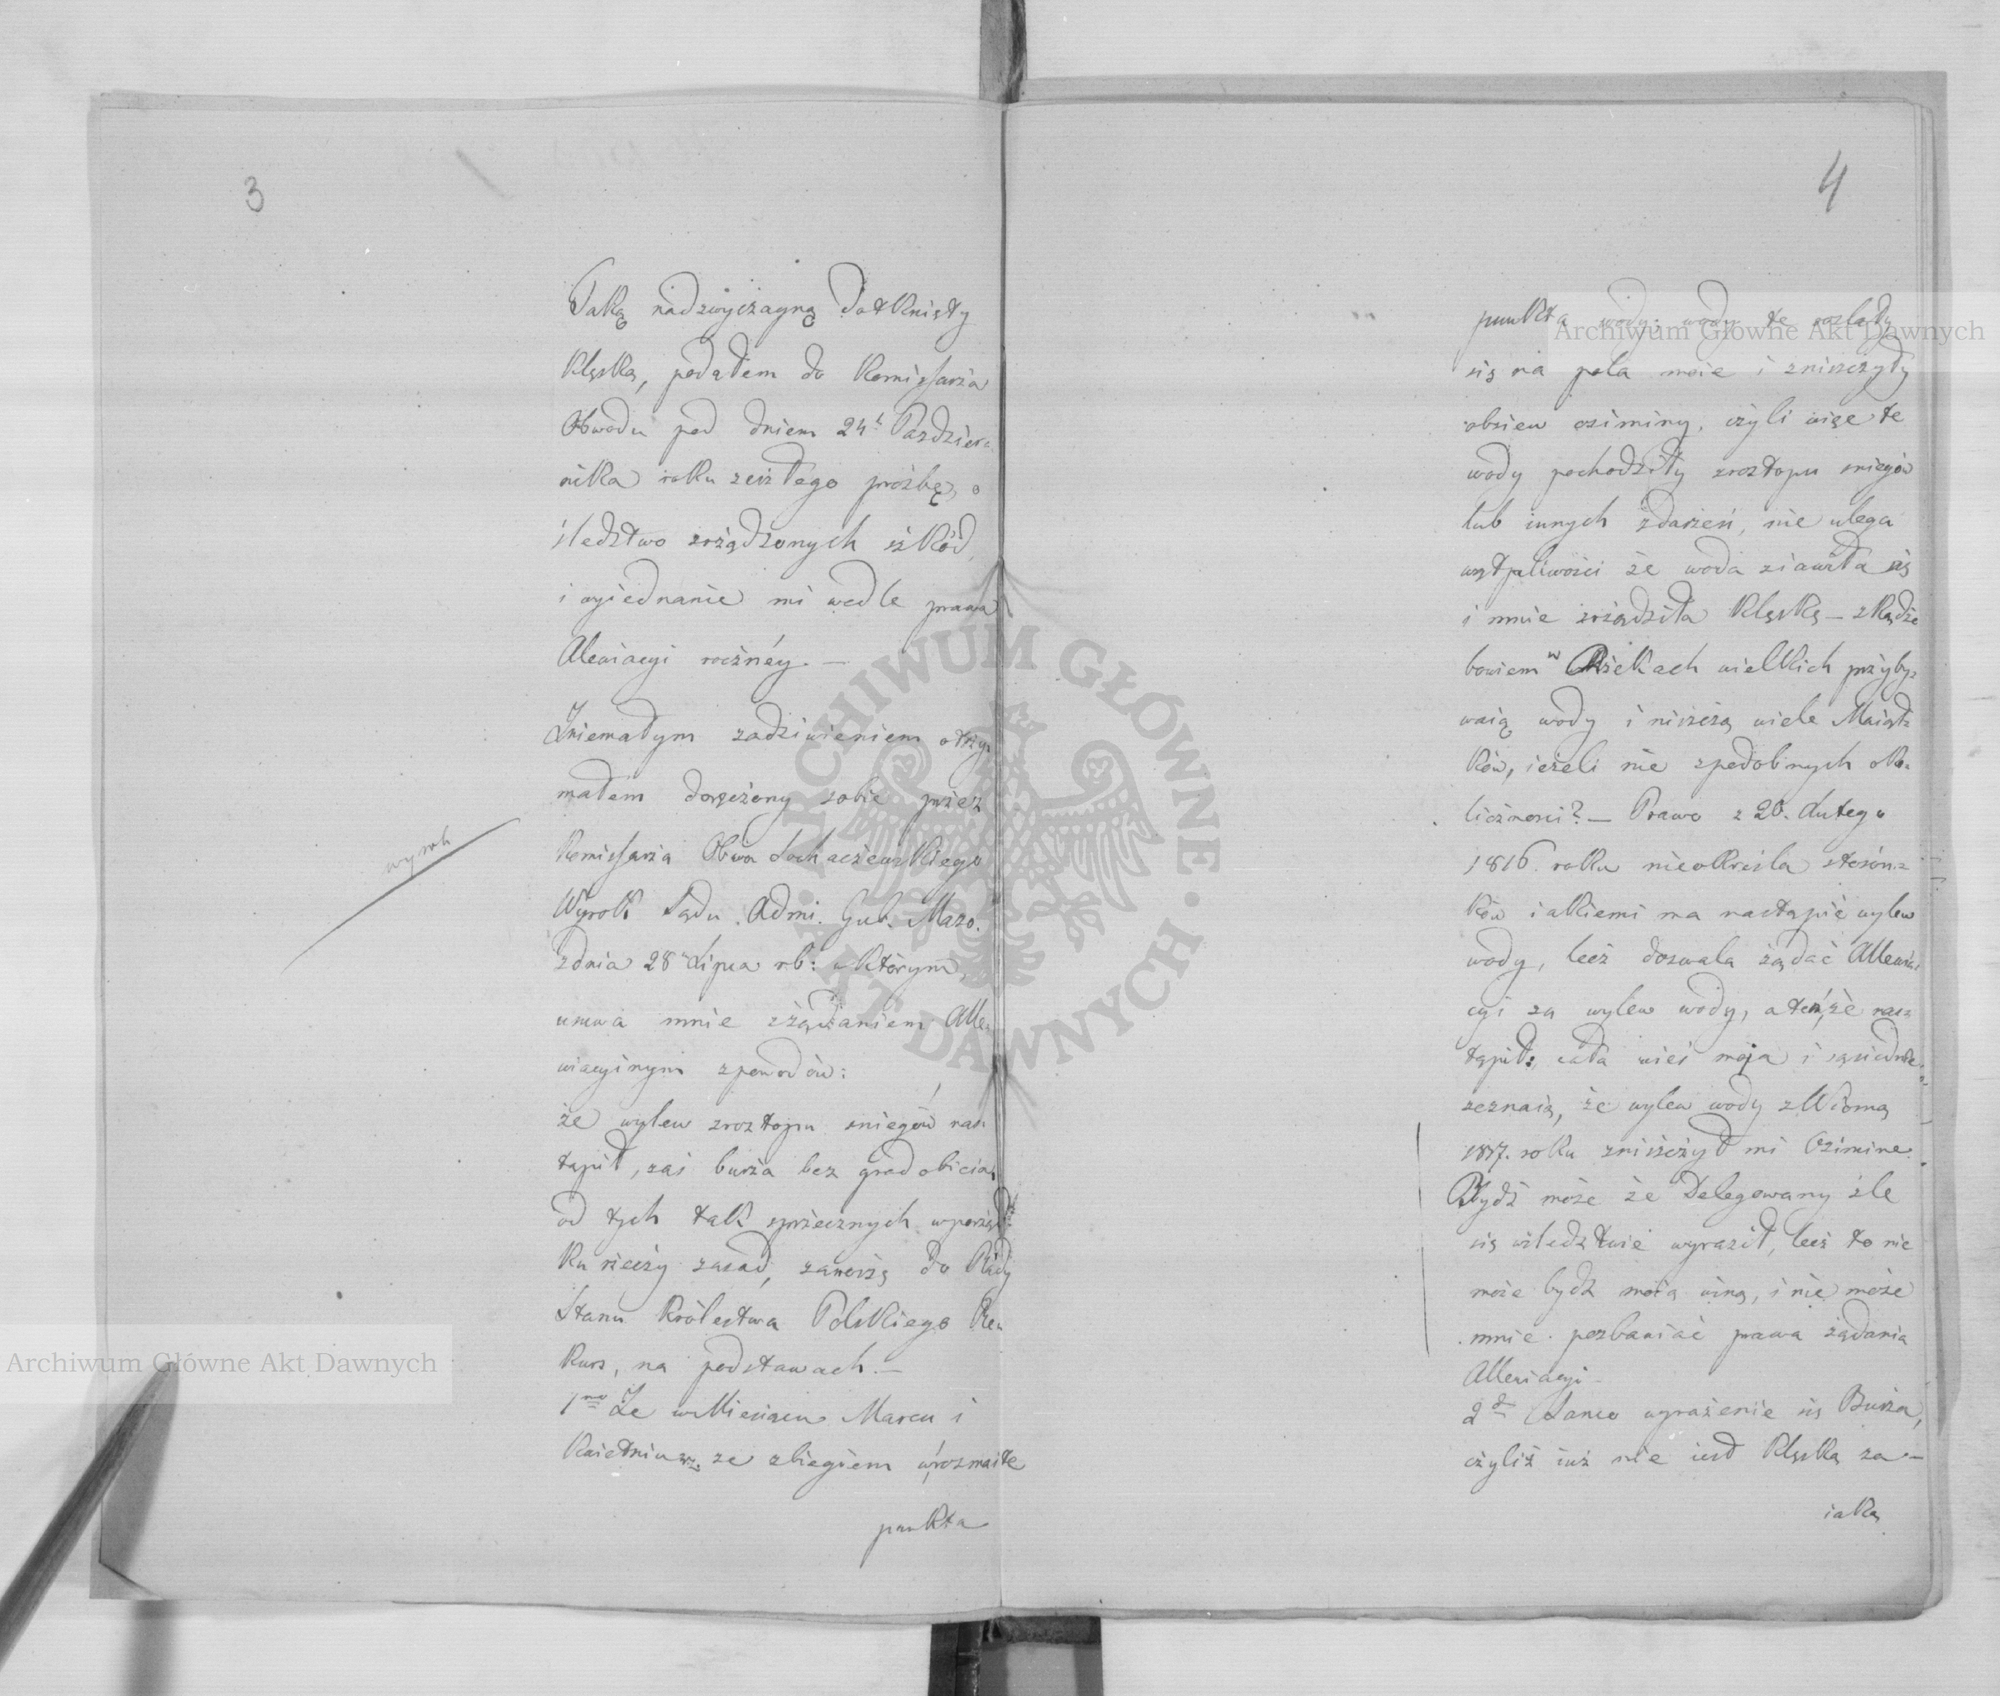 3
Taką nadzwyczayną dotknięty
klęską, podałem do Kommissarza
Obwodu pod dniem 24t Paździer-
nika roku zeszłego prośbę, o
śledztwo zrządzonych szkód,
i wyiednanie mi wedle prawa
Alewiacyi roczney. —
Zniemałym zadziwieniem otrzy-
małem doręczony sobie przez
Kommissarza Obwo Sochaczewskiego
Wyrok Sądu Admi. Gub. Mazo.
z dnia 28 Lipca rb: w którym,
usuwa mnie z żądaniem Alle-
wiacyinym z powodów:
że wylew z roztopu sniegów nas-
tąpił, zaś burza bez gradobicia
od tych tak sprzecznych w porząd-
ku rzeczy zasad, zanoszę do Rady
Stanu Królestwa Polskiego Re-
kurs, na podstawach. —
1mo Że w Miesiącu Marcu i
Kwietniu ze zbiegiem w rozmaite
punkta
wyrok
4
punkta wody; wody te rozlały
się na pola moie i zniszczyły
obsiew oziminy, czyli więc te
wody pochodziły z roztopu sniegów
lub innych zdarzeń, nie ulega
wątpliwości że woda ziawiła się
i mnie zrządziła klęskę — zkądże
bowiem w Rzekach wielkich przyby-
waią wody i niszczą wiele Maiąt-
ków, ieżeli nie z podobnych oko-
liczności? — Prawo z 20. Lutego
1816 roku nieokreśla stosun-
ków iakiemi ma nastąpić wylew
wody, lecz dozwala żądać Allewia-
cyi za wylew wody, a ten, że nas-
tąpił, cała wieś moja i sąsiednie
zeznaią, że wylew wody z Wiosną
1857. roku zniszczył mi Oziminę.
Bydź może że Delegowany źle
się w śledztwie wyraził, lecz to nie
może bydź moią winą, i nie może
mnie pozbawiać prawa żądania
Allewiacyi —
2do Samo wyrażenie się Burza,
czyliż iuż nie iest klęską za-
iaką
Archiwum Główne Akt Dawnych
Archiwum Główne Akt Dawnych
ARCHIWUM GŁÓWNE
AKT DAWNYCH